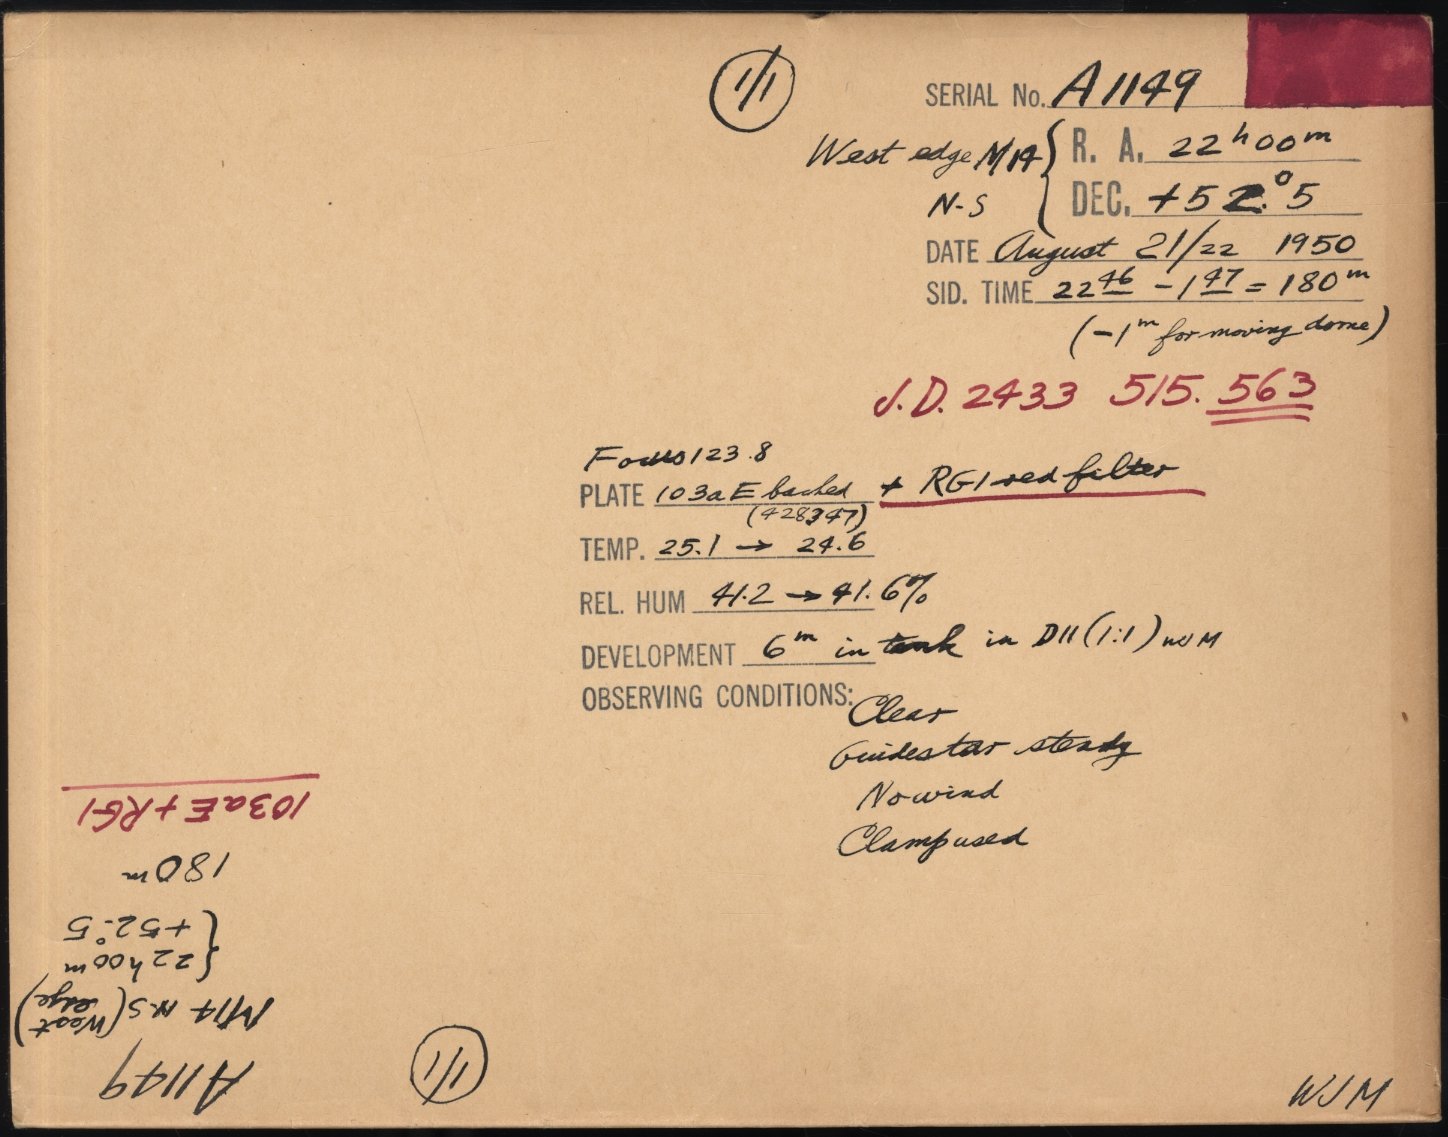 1/1
SERIAL No. A1149
West edge M14 { R. A. 22ʰ00ᵐ
N-S DEC. +52.°5
DATE August 21/22 1950
SID. TIME 22 46 - 1 47 = 180ᵐ
(-1ᵐ for moving dome)
J.D. 2433 515.563
Focus 123.8
PLATE 103aE backed + RG1 red filter
(428347)
TEMP. 25.1 → 24.6
REL. HUM 41.2 → 41.6%
DEVELOPMENT 6ᵐ in tank in D11 (1:1) WJM
OBSERVING CONDITIONS:
Clear
Guidestar steady
No wind
Clamp used
A1149
M14 N-S (West edge)
{ 22ʰ00ᵐ
+52.°5
180ᵐ
103aE + RG1
1/1
WJM